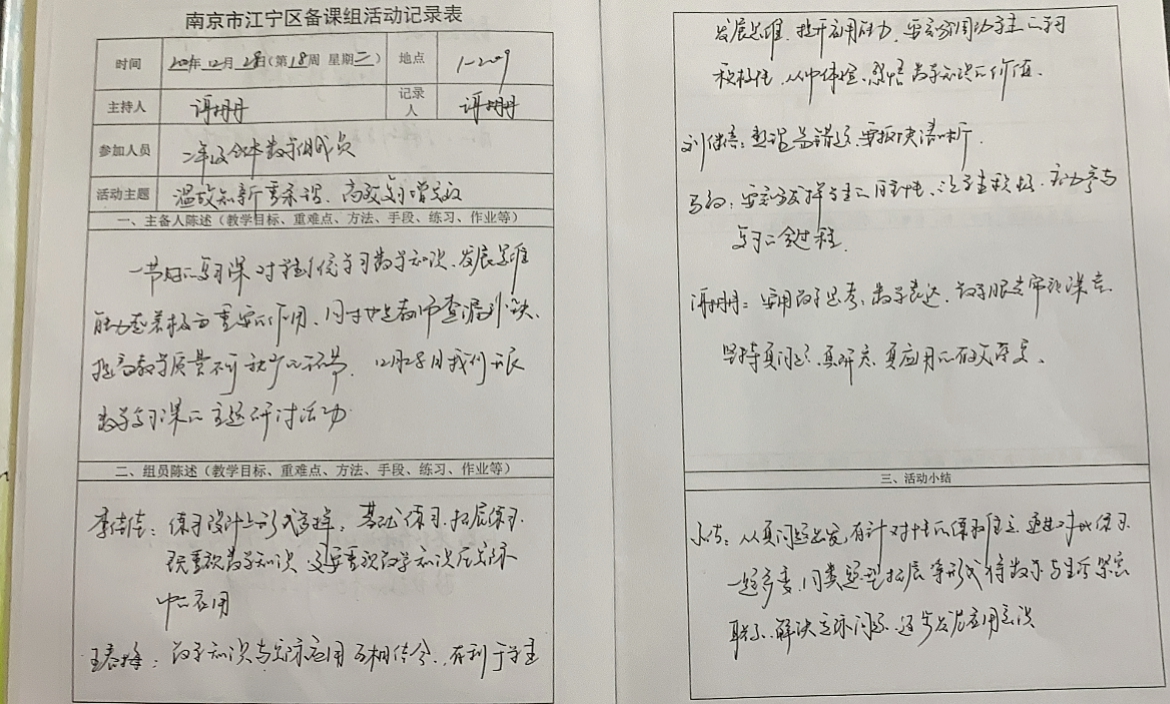 南京市江宁区备课组活动记录表
时间 年12月28日(第18周 星期二) 地点 1-209
主持人 记录人
参加人员 二年级全体数学组成员
活动主题 温故知新重录课、高效复习增实效
一、主备人陈述（教学目标、重难点、方法、手段、练习、作业等）
一节好的复习课对学生系统学习数学知识、发展思维
能力起着极为重要的作用、同时也是教师查漏补缺、
提高教学质量不可缺少的环节. 12月28日我们开展
数学复习课的主题研讨活动
二、组员陈述（教学目标、重难点、方法、手段、练习、作业等）
李佳佳：练习设计上形式多样, 基础练习、拓展练习.
既重视数学知识 又要重视数学知识在实际
中的应用
王春梅：数学知识与实际应用互相结合、有利于学生
发展思维、提升应用能力、要充分调动学生的学习
积极性、从中体验、感悟数学知识的价值.
刘 整理易错题、要抓 清晰.
要充分发挥学生的自主性、让学生积极、主动参与
复习的全过程.
要用数学思考、数学表达、数学眼光审视课堂.
坚持真问题、真研究、真应用的
三、活动小结
小结：从真问题出发, 有针对性的练习 通过对比练习
一题多变、同类题型拓展等形式将数学与生活紧密
联系、解决实际问题、逐步发展应用意识